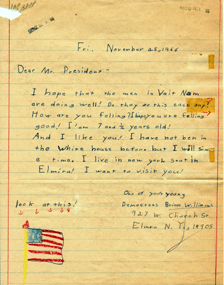 Fri. November 25, 1966
Dear Mr. President-
I hope that the men in Vait Nam
are doing well! Do they at this each day?
How are you felling? I hope you are felling
good! I am 7 and ½ years old!
And I like you! I have not ben in
the White house before but I will
a time. I live in new york
Elmira! I want to visit you!
look at this!
One of your young
Democrats Brian Williams
927 W. Church St.
Elmira N. Y. 14905